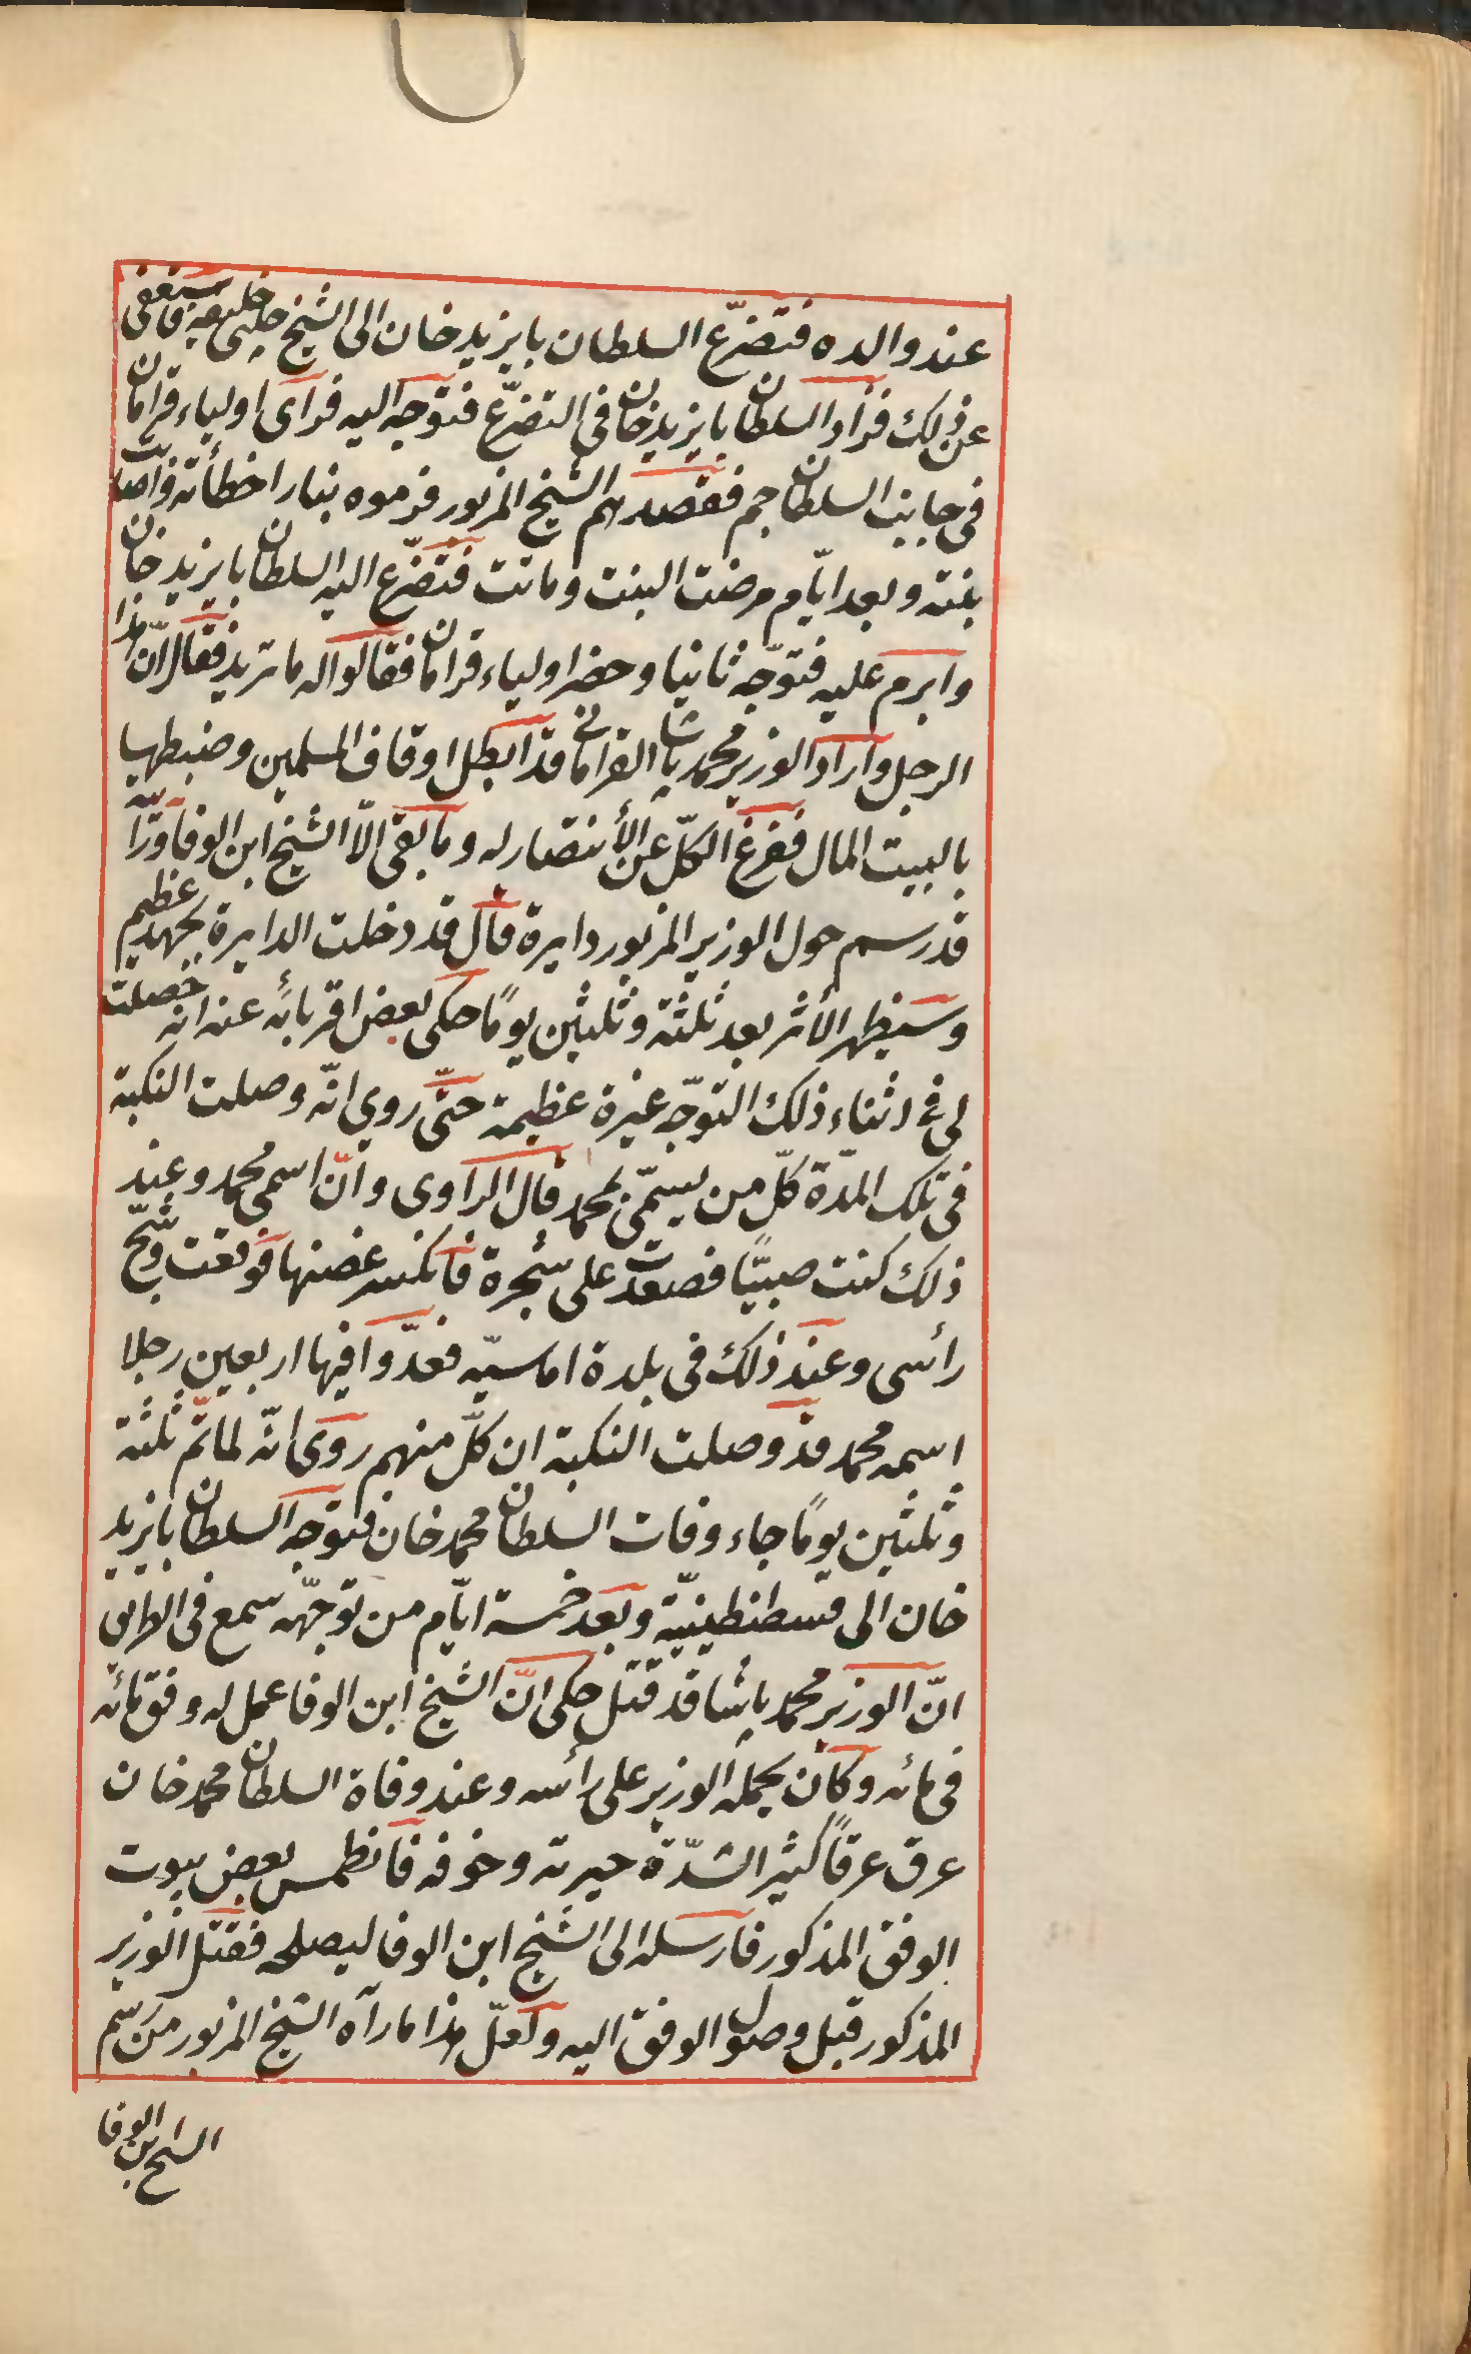 عند والده فتضرّع السلطان بايزيد خان الى الشيخ چلبى خليفه فاستعفى
عن ذلك فزاد السلطان بايزيد خان فى التضرّع فتوجّه اليه فرأى اولياء قرامان
فى جانب السلطان جم فقصدهم الشيخ المزبور فرموه بنار اخطأته واصابت
بنته وبعد ايّام مرضت البنت وماتت فتضرّع اليه السلطان بايزيد خان
وابرم عليه فتوجّه ثانيا وحضر اولياء قرامان فقالوا له ما تريد فقال انّ هذا
الرجل واراد الوزير محمد پاشا القرامانى قد ابطل اوقاف المسلمين وضبطها
بالبيت المال ففرغ الكلّ عن الأنتصار له وما بقى الّا الشيخ ابن الوفا ورآه
قد رسم حول الوزير المزبور دايرة قال قد دخلت الدايرة بجهد عظيم
وسيظهر الأثر بعد ثلثة وثلثين يومًا حكى بعض اقربائه عنه انه حصلت
لى فى اثناء ذلك التوجّه غيرة عظيمة حتّى روى انّه وصلت النكبة
فى تلك المدّة كلّ من يسمّى بمحمد قال الراوى وانّ اسمى محمد وعند
ذلك كنت صبيًّا فصعدت على شجرة فانكسر غصنها فوقعت وشجّ
رأسى وعند ذلك فى بلدة اماسيّه فعدّوا فيها اربعين رجلا
اسمه محمد قد وصلت النكبة ان كلّ منهم روى انّه لما تمّ ثلثة
وثلثين يومًا جاء وفات السلطان محمد خان فتوجّه السلطان بايزيد
خان الى قسطنطينيّة وبعد خمسة ايّام من توجّهه سمع فى الطريق
انّ الوزير محمد پاشا قد قتل حكى انّ الشيخ ابن الوفا عمل له وفق مائه
فى مائه وكان يحمله الوزير على رأسه وعند وفاة السلطان محمد خان
عرق عرقًا كثيرا لشدّة حيرته وخوفه فانطمس بعض بيوت
الوفق المذكور فارسله الى الشيخ ابن الوفا ليصلحه فقتل الوزير
المذكور قبل وصول الوفق اليه ولعلّ هذا ما رآه الشيخ المزبور من رسم
الشيخ ابن الوفا